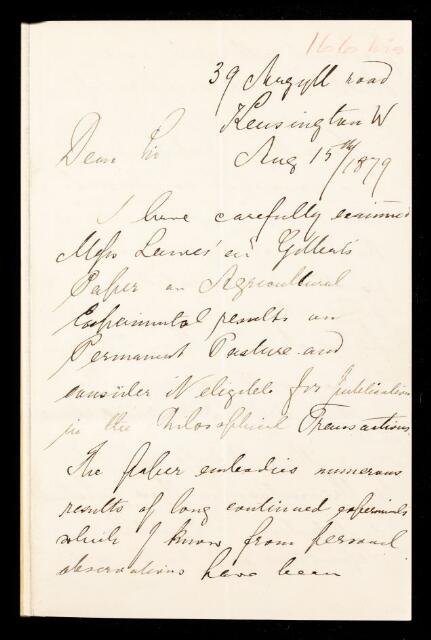 39 Argyll road
Kensington W
Dear Sir Aug 15th/1879
I have carefully examined
Messrs Lawes' & Gilbert's
Paper on Agricultural
Experimental results on
Permanent Pasture and
consider it eligible for publication
in the Philosophical Transactions.
The paper embodies numerous
results of long continued experiments
which I know from personal
observations have been